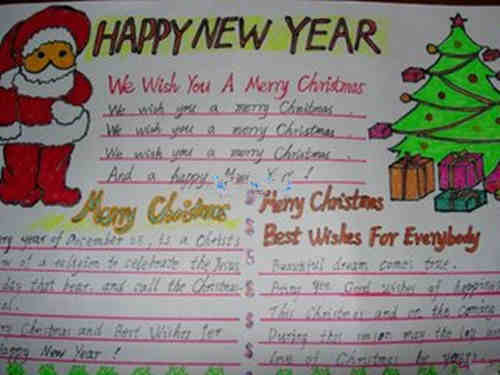 HAPPY NEW YEAR
We Wish You A Merry Christmas
We wish you a merry Christmas.
We wish you a merry Christmas.
We wish you a merry Christmas.
And a happy !
Merry Christmas
year of December 25, is a Christ
of a religion to celebrate the Jesus
day that bear, and call the Christmas
Christmas and Best Wishes for
Happy New Year !
Merry Christmas
Best Wishes For Everybody
Beautiful dream comes true.
Bring you Good Wishes of happine
This Christmas and on the coming
During this season may the joy and
love of Christmas be yours